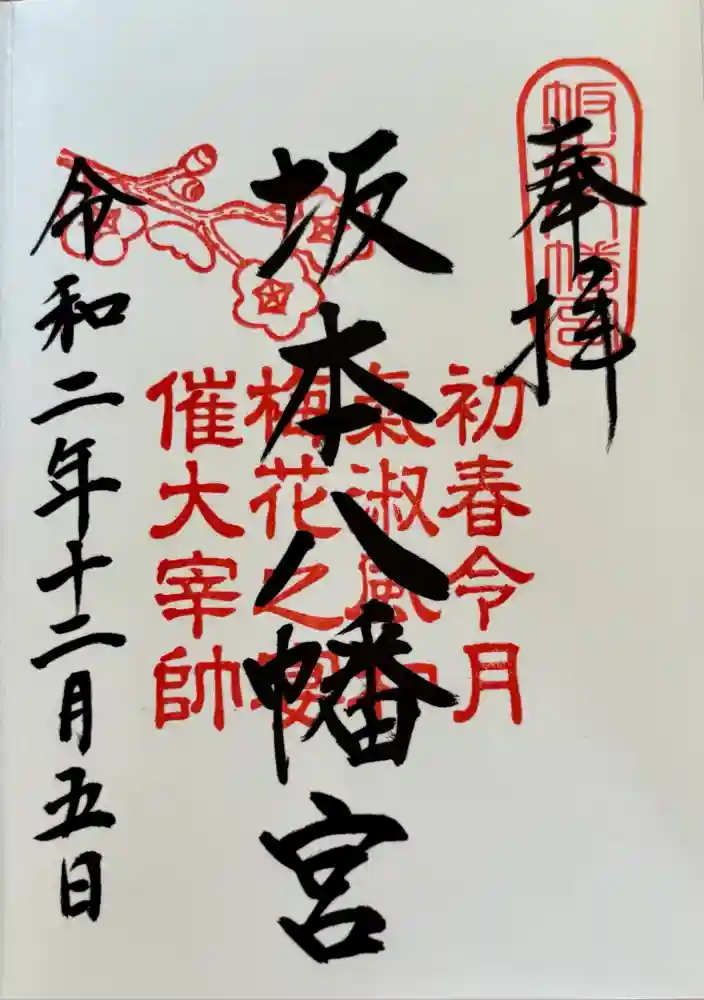 奉拝
坂本八幡宮
初春令月
氣淑風和
坂本八幡宮
梅花之宴
催大宰帥
令和二年十二月五日